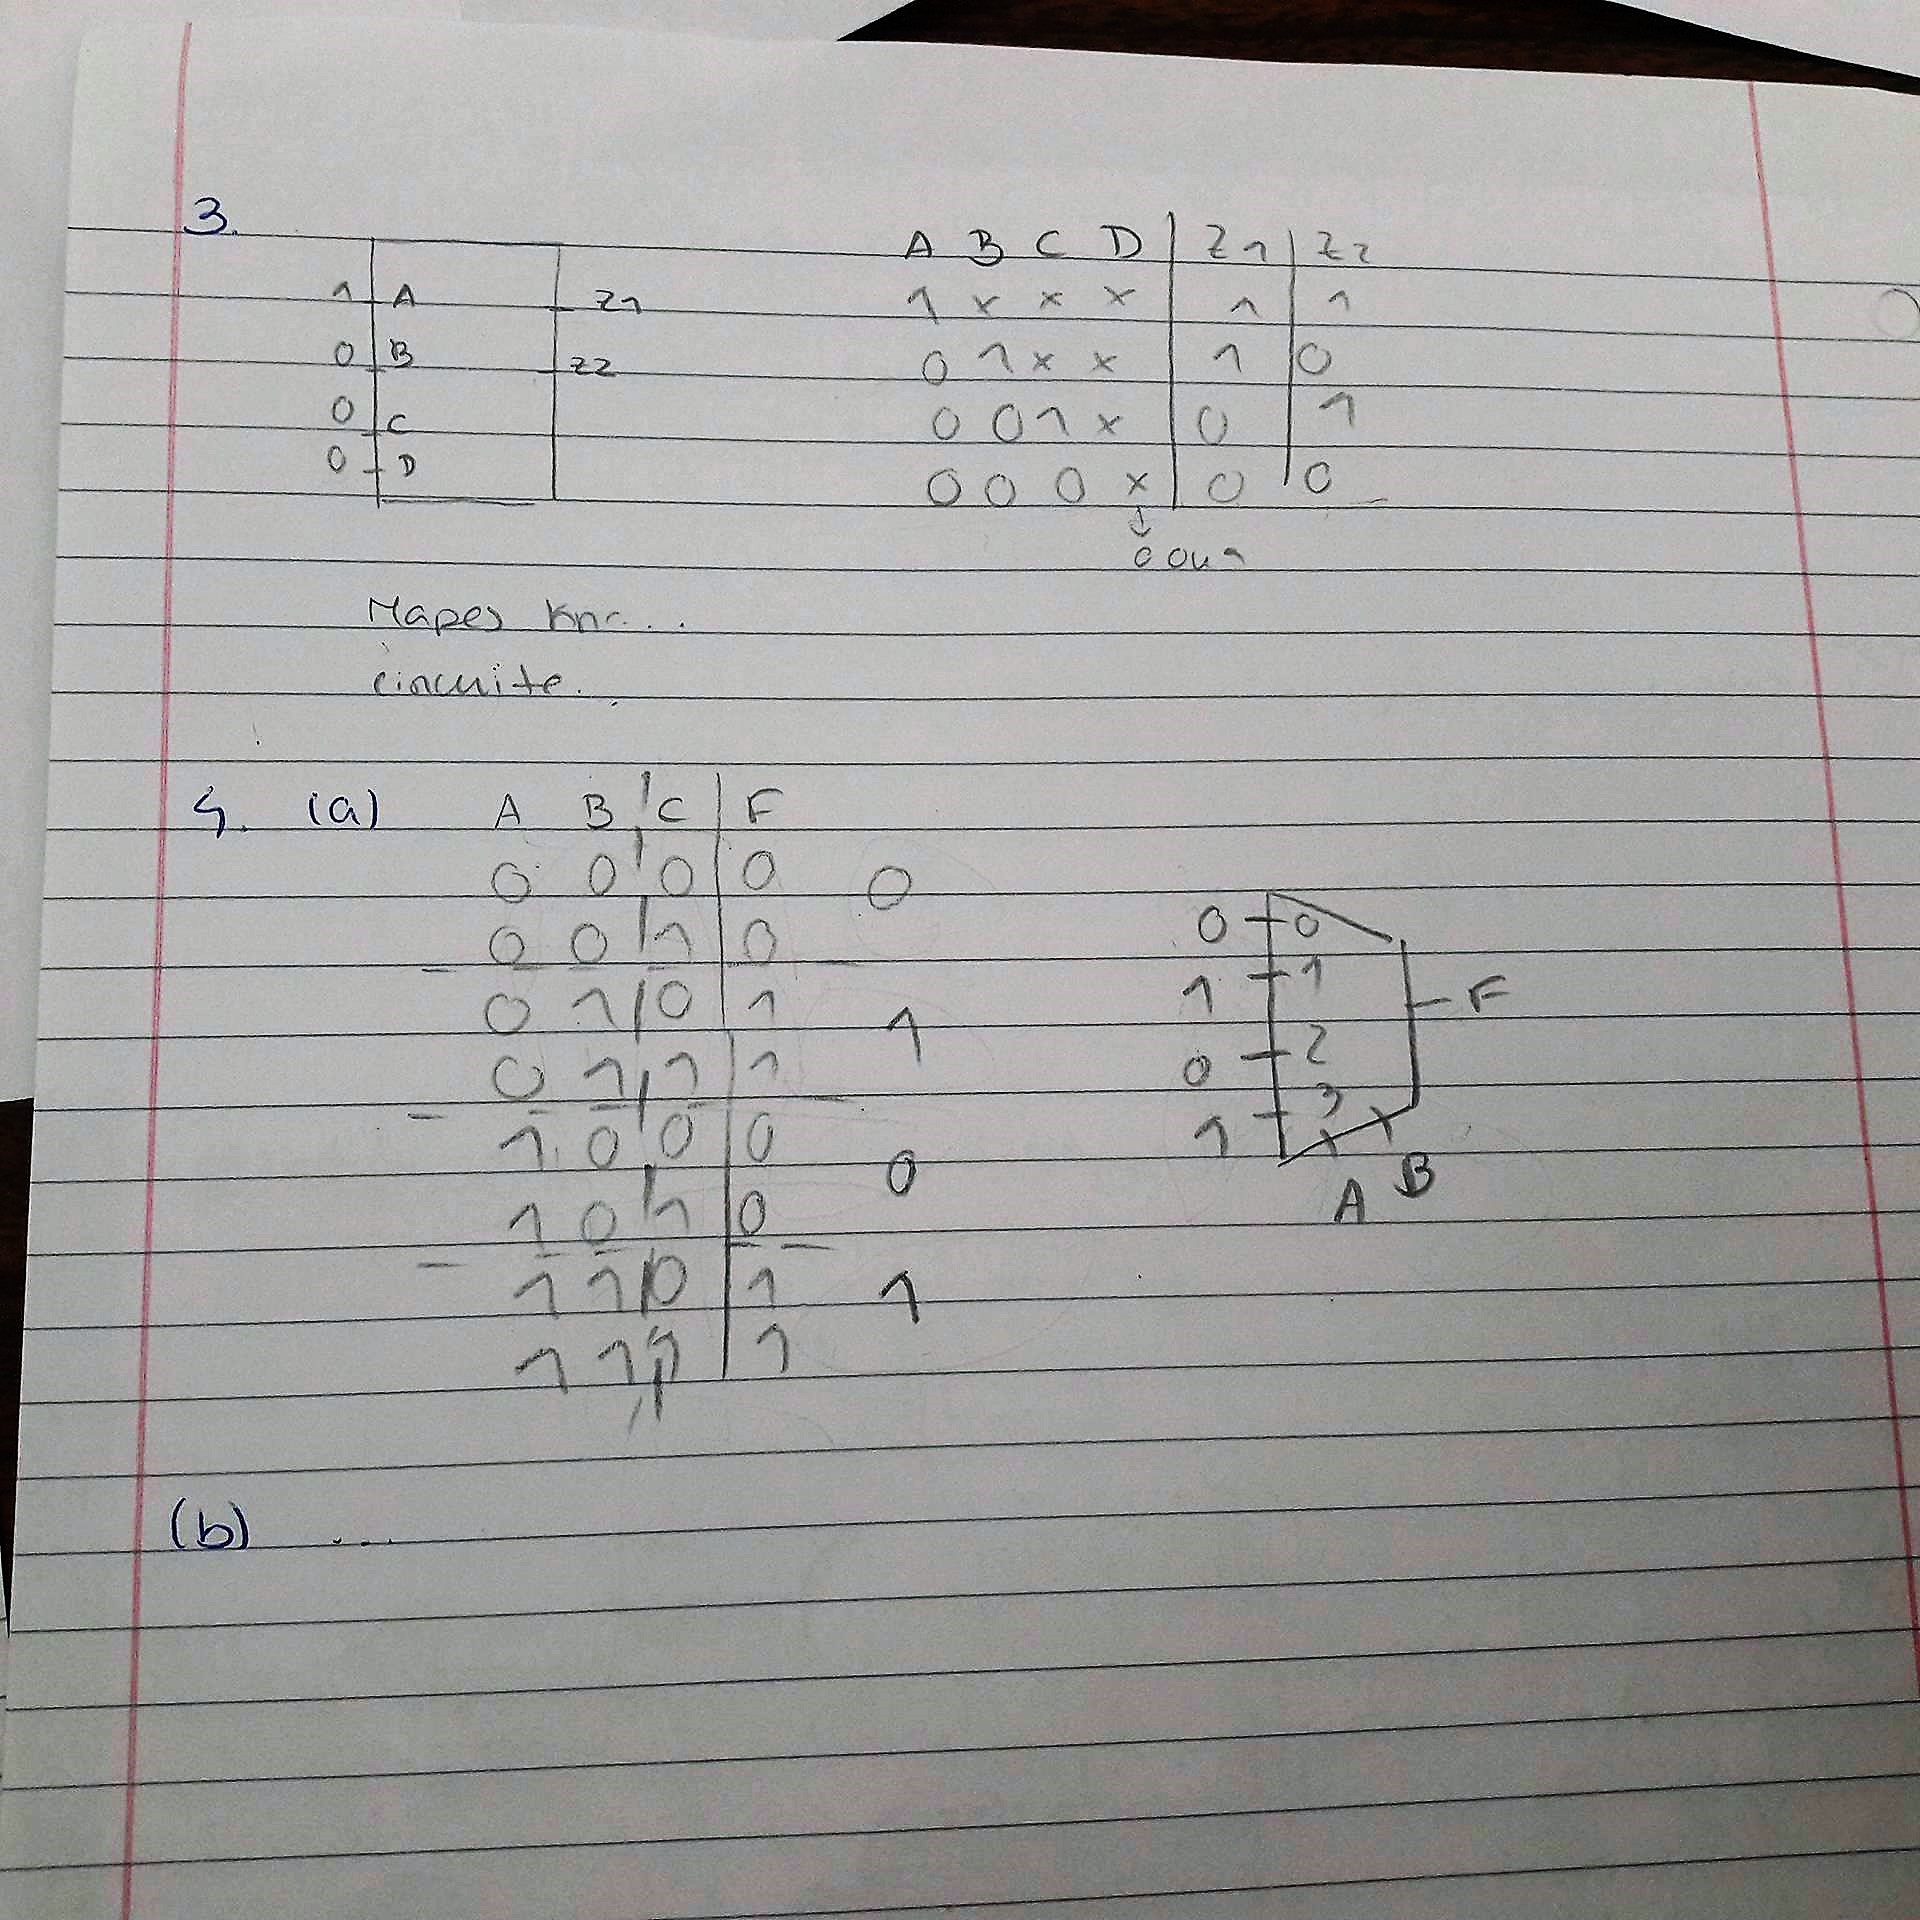 3.
1 A Z1
0 B Z2
0 C
0 D
A B C D Z1 Z2
1 x x x 1 1
0 1 x x 1 0
0 0 1 x 0 1
0 0 0 x 0 0
↓
0 ou 1
Mapes
circuite.
4. (a) A B C F
0 0 0 0 0
0 0 1 0
0 1 0 1 1
0 1 1 1
1 0 0 0 0
1 0 1 0
1 1 0 1 1
1 1 1 1
0 0
1 1 F
0 2
1 3
A B
(b) ...